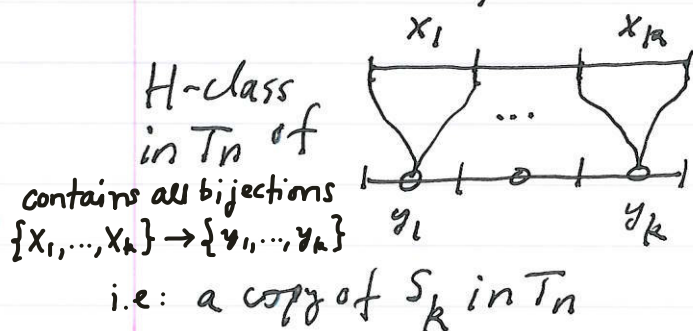 X₁ X_k
H-class
in Tn of
...
contains all bijections
{X₁,...,X_k} → {y₁,...,y_k}
y₁ y_k
i.e: a copy of S_k in Tn